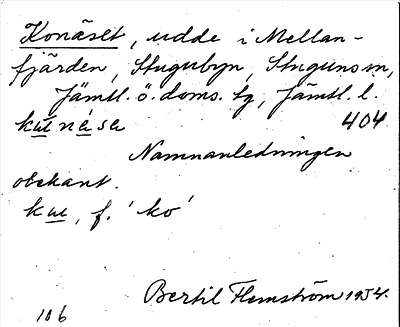 Konäset, udde i Mellan-
fjärden, Stugubyn, Stuguns sn,
Jämtl. ö. doms. tg, Jämtl. l.
404
Namnanledningen
obekant.
f. 'ko'
Bertil Flemström 1954.
106